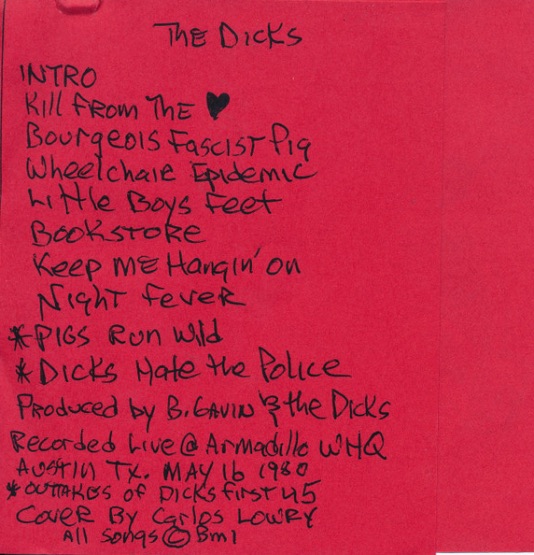 The Dicks
INTRO
Kill From The ♥
Bourgeois Fascist Pig
Wheelchair Epidemic
Little Boys Feet
Bookstore
Keep Me Hangin' on
Night Fever
*PIGS Run Wild
*Dicks Hate the Police
Produced by B. Gavin & the Dicks
Recorded Live @ Armadillo WHQ
Austin TX. MAY 16 1980
*outtakes of Dicks first 45
Cover By Carlos Lowry
All Songs © Bmi